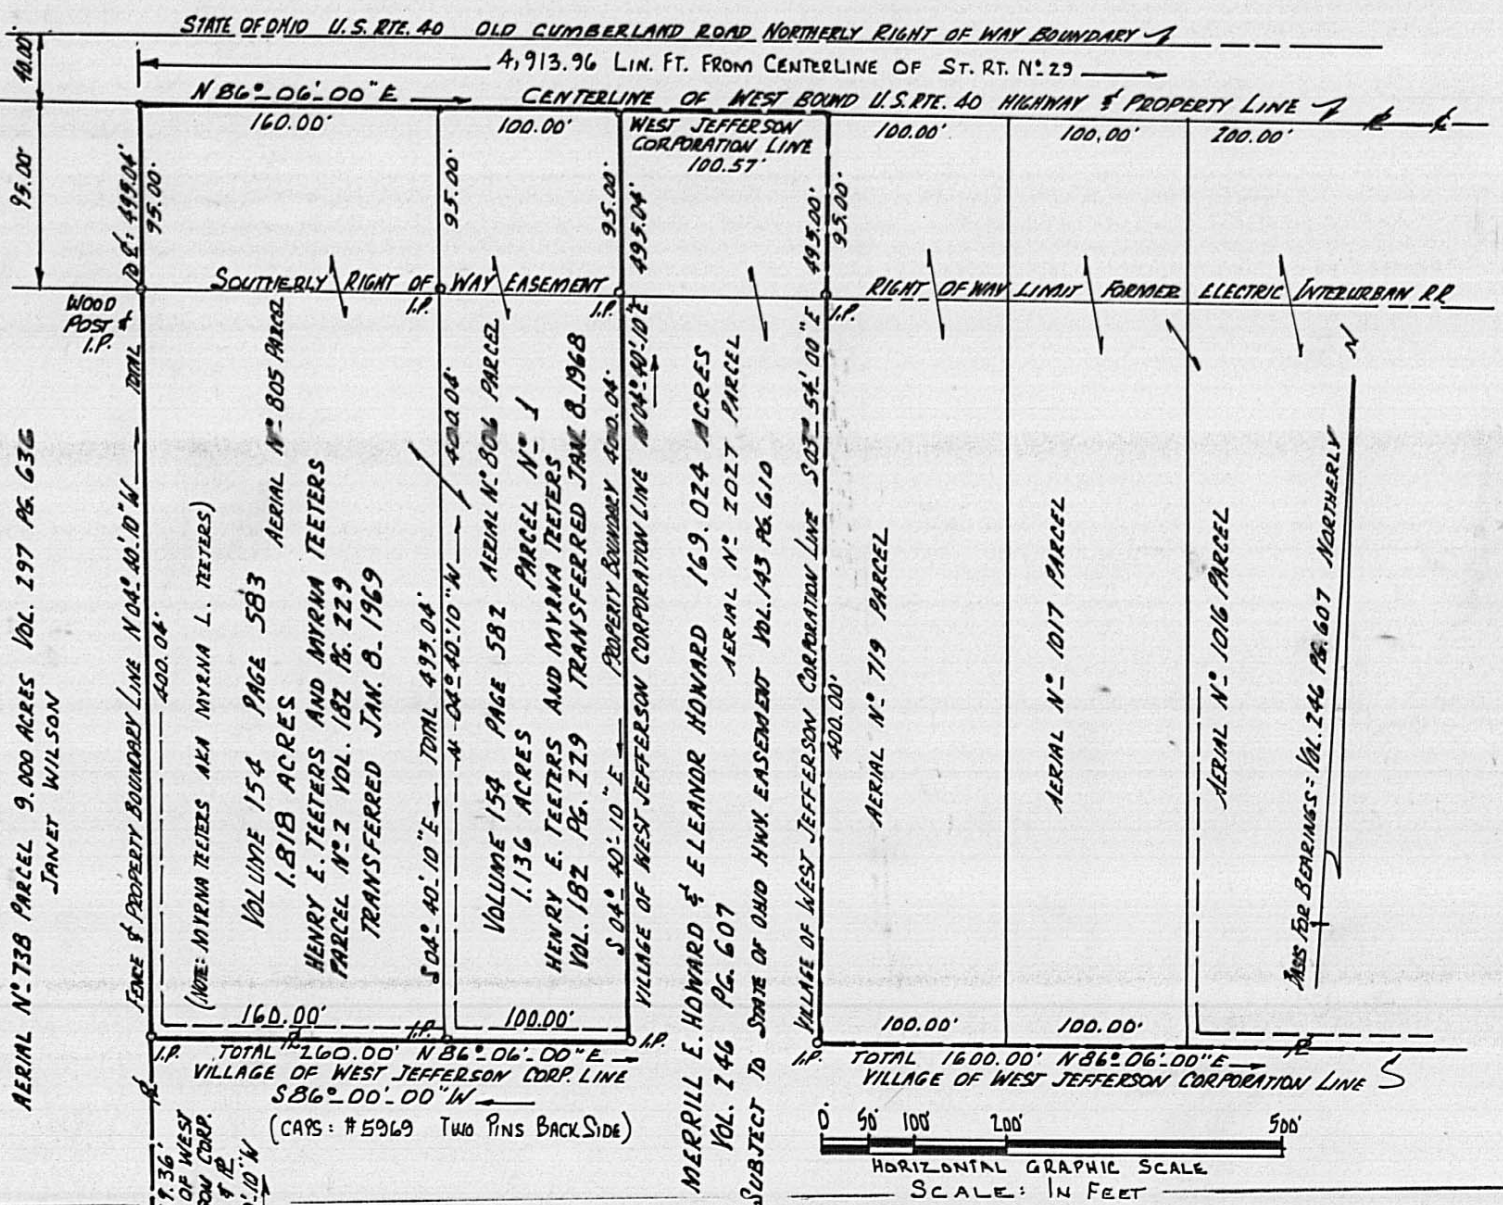 STATE OF OHIO U.S. RTE. 40 OLD CUMBERLAND ROAD NORTHERLY RIGHT OF WAY BOUNDARY
40.00'
4,913.96 LIN. FT. FROM CENTERLINE OF ST. RT. Nº 29
N 86º-06'-00" E CENTERLINE OF WEST BOUND U.S. RTE. 40 HIGHWAY & PROPERTY LINE
160.00'
100.00'
WEST JEFFERSON
CORPORATION LINE
100.57'
100.00'
100.00'
200.00'
95.00'
TO ℄ 495.04'
95.00'
95.00'
95.00'
495.04'
495.00'
95.00'
SOUTHERLY RIGHT OF WAY EASEMENT
RIGHT OF WAY LIMIT FORMER ELECTRIC INTERURBAN RR
WOOD
POST &
I.P.
I.P.
I.P.
I.P.
N
AERIAL Nº 738 PARCEL 9.000 ACRES VOL 297 PG. 636
JANET WILSON
FENCE & PROPERTY BOUNDARY LINE N 04º 40' 10" W TOTAL
400.04'
(NOTE: MYRNA TEETERS AKA MYRNA L TEETERS)
VOLUME 154 PAGE 583 AERIAL Nº 805 PARCEL
1.818 ACRES
HENRY E. TEETERS AND MYRNA TEETERS
PARCEL Nº 2 VOL. 182 PG. 229
TRANSFERRED JAN. 8. 1969
S 04º-40'-10" E TOTAL 495.04'
N 04º-40'-10" W 400.04'
VOLUME 154 PAGE 582 AERIAL Nº 806 PARCEL
1.136 ACRES PARCEL Nº 1
HENRY E. TEETERS AND MYRNA TEETERS
VOL. 182 PG. 229 TRANSFERRED JAN. 8. 1968
S 04º 40'-10" E PROPERTY BOUNDARY 400.04'
VILLAGE OF WEST JEFFERSON CORPORATION LINE N 04º-40'-10" E
MERRILL E. HOWARD & ELEANOR HOWARD 169.024 ACRES
VOL. 246 PG. 607 AERIAL Nº 2027 PARCEL
SUBJECT TO STATE OF OHIO HWY. EASEMENT VOL. 143 PG. 610
VILLAGE OF WEST JEFFERSON CORPORATION LINE S 05º 54' 00" E
400.00'
AERIAL Nº 719 PARCEL
AERIAL Nº 1017 PARCEL
AERIAL Nº 1016 PARCEL
BASIS FOR BEARINGS: VOL. 246 PG. 607 NORTHERLY
160.00'
I.P.
100.00'
100.00'
100.00'
I.P.
TOTAL 260.00' N 86º-06'-00" E
I.P.
VILLAGE OF WEST JEFFERSON CORP. LINE
S 86º-00'-00" W
(CAPS: #5969 TWO PINS BACK SIDE)
I.P.
TOTAL 1600.00' N 86º-06'-00" E
VILLAGE OF WEST JEFFERSON CORPORATION LINE
9.36'
OF WEST
ON CORP.
& ⅊
'10" W
0' 50' 100' 200' 500'
HORIZONTAL GRAPHIC SCALE
SCALE: IN FEET